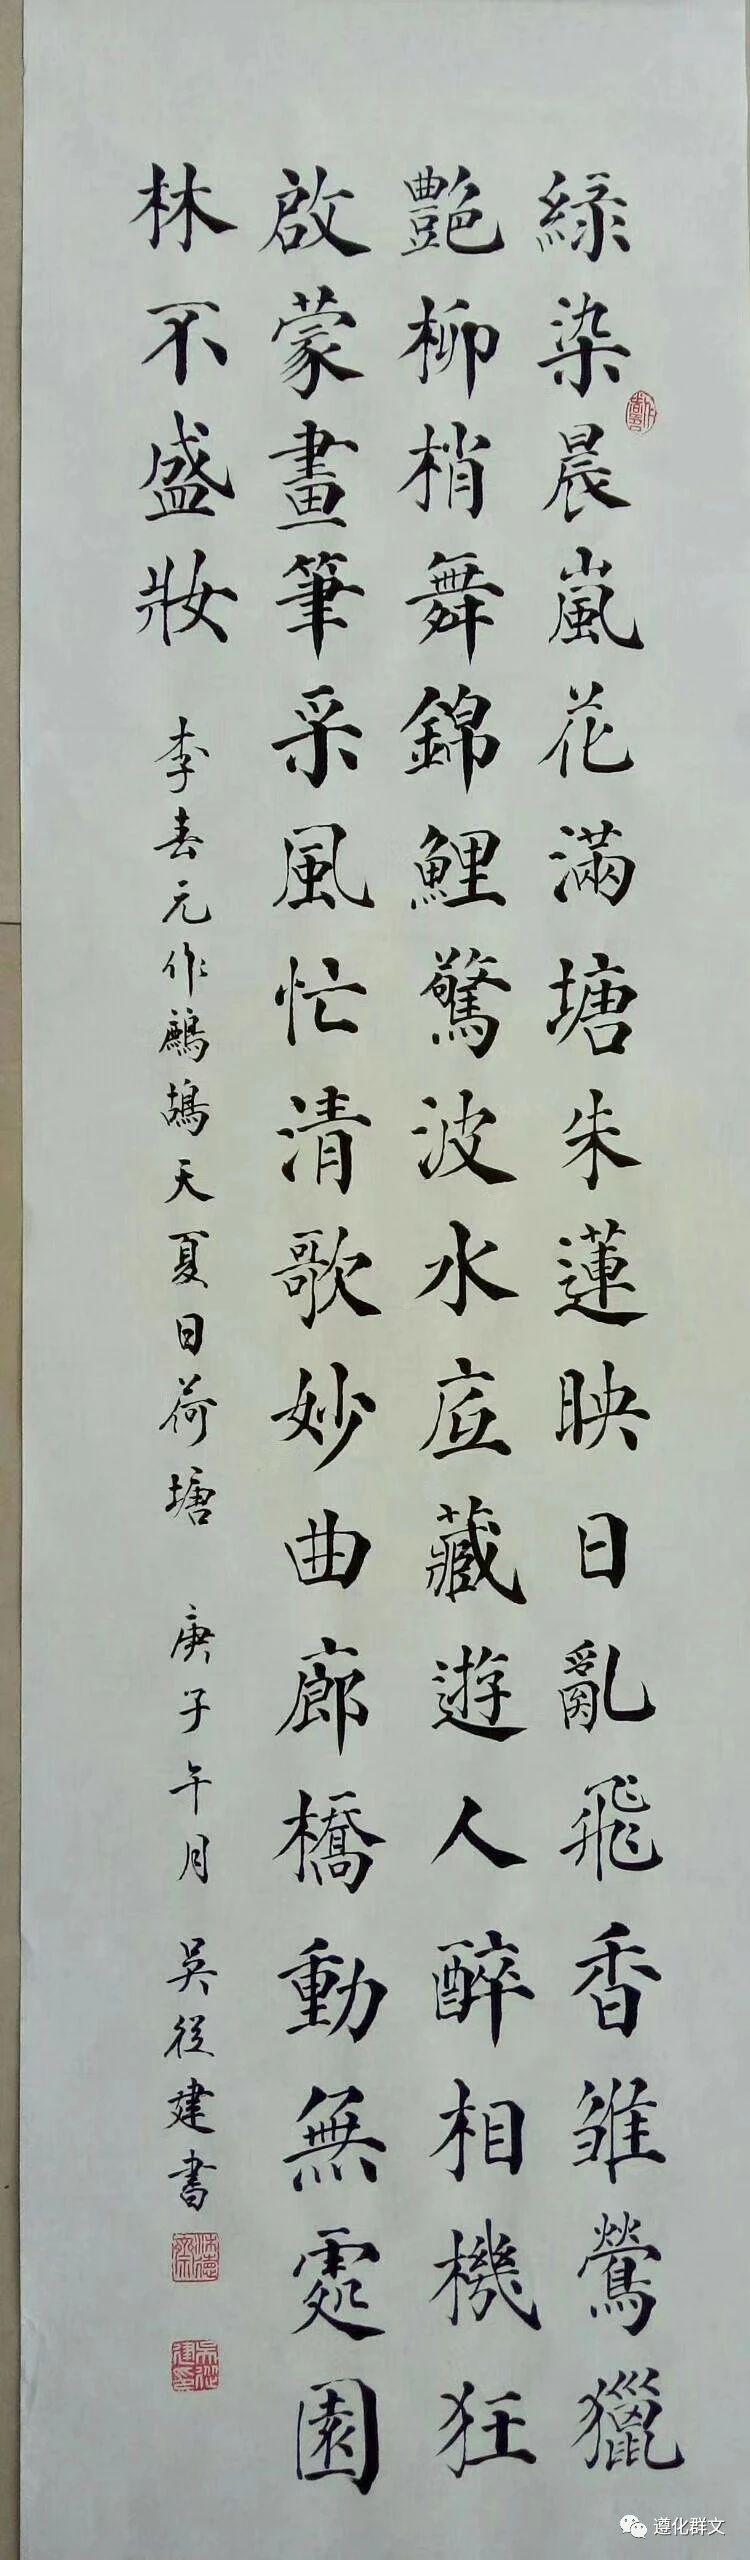 綠染晨嵐花滿塘朱蓮映日亂飛香雏鶯獵
艷柳梢舞錦鯉驚波水底藏遊人醉相機狂
啟蒙畫筆采風忙清歌妙曲廊橋動無處園
林不盛妝
李春元作鷓鴣天夏日荷塘 庚子午月 吳從建書
遵化群文